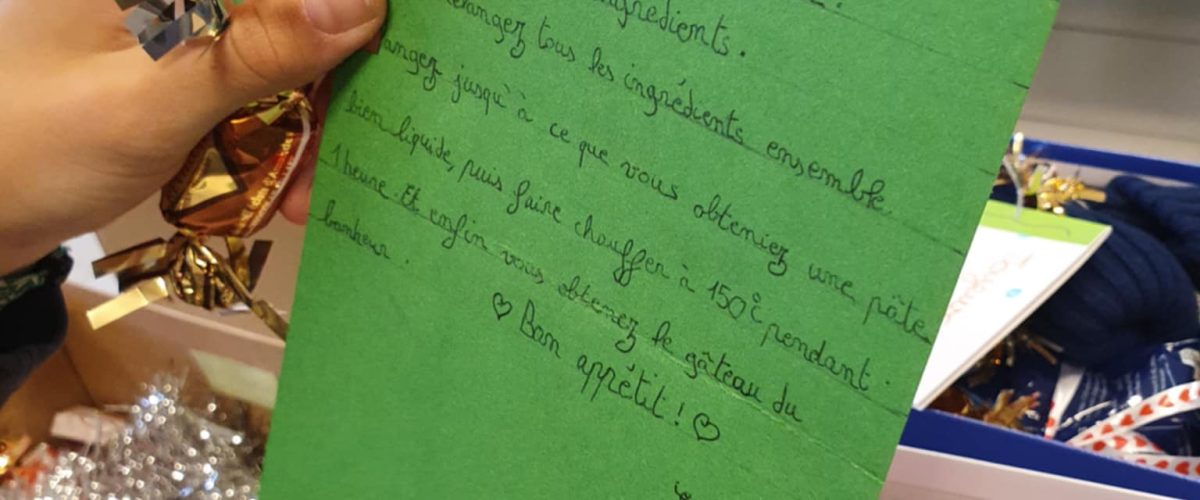 ingrédients.
tous les ingrédients ensemble
jusqu'à ce que vous obteniez une pâte
bien liquide, puis faire chauffer à 150°c pendant
1 heure. Et enfin vous obtenez le gâteau du
bonheur.
♡ Bon appétit ! ♡